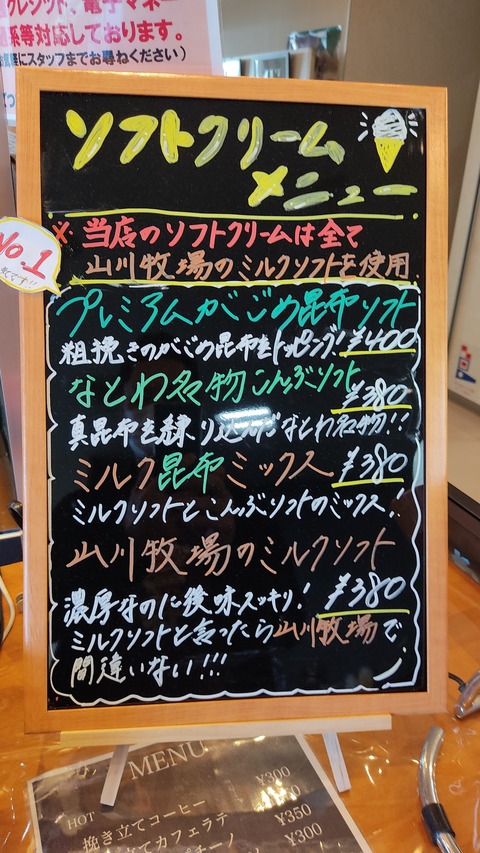 クレジット、電子マネー
関係等対応しております。
にスタッフまでお尋ねください)
ソフトクリーム
メニュー
※当店のソフトクリームは全て
山川牧場のミルクソフトを使用
No.1
です!!
プレミアムがごめ昆布ソフト
粗挽きのがごめ昆布をトッピング! ¥400
なとわ名物こんぶソフト
¥380
真昆布を練り込んだなとわ名物!!
ミルク昆布ミックス ¥380
ミルクソフトとこんぶソフトのミックス!
山川牧場のミルクソフト
濃厚なのに後味スッキリ! ¥380
ミルクソフトと言ったら山川牧場で
間違いない!!!
MENU
HOT
¥300
挽き立てコーヒー
立てカフェラテ
¥350
プチーノ
¥300